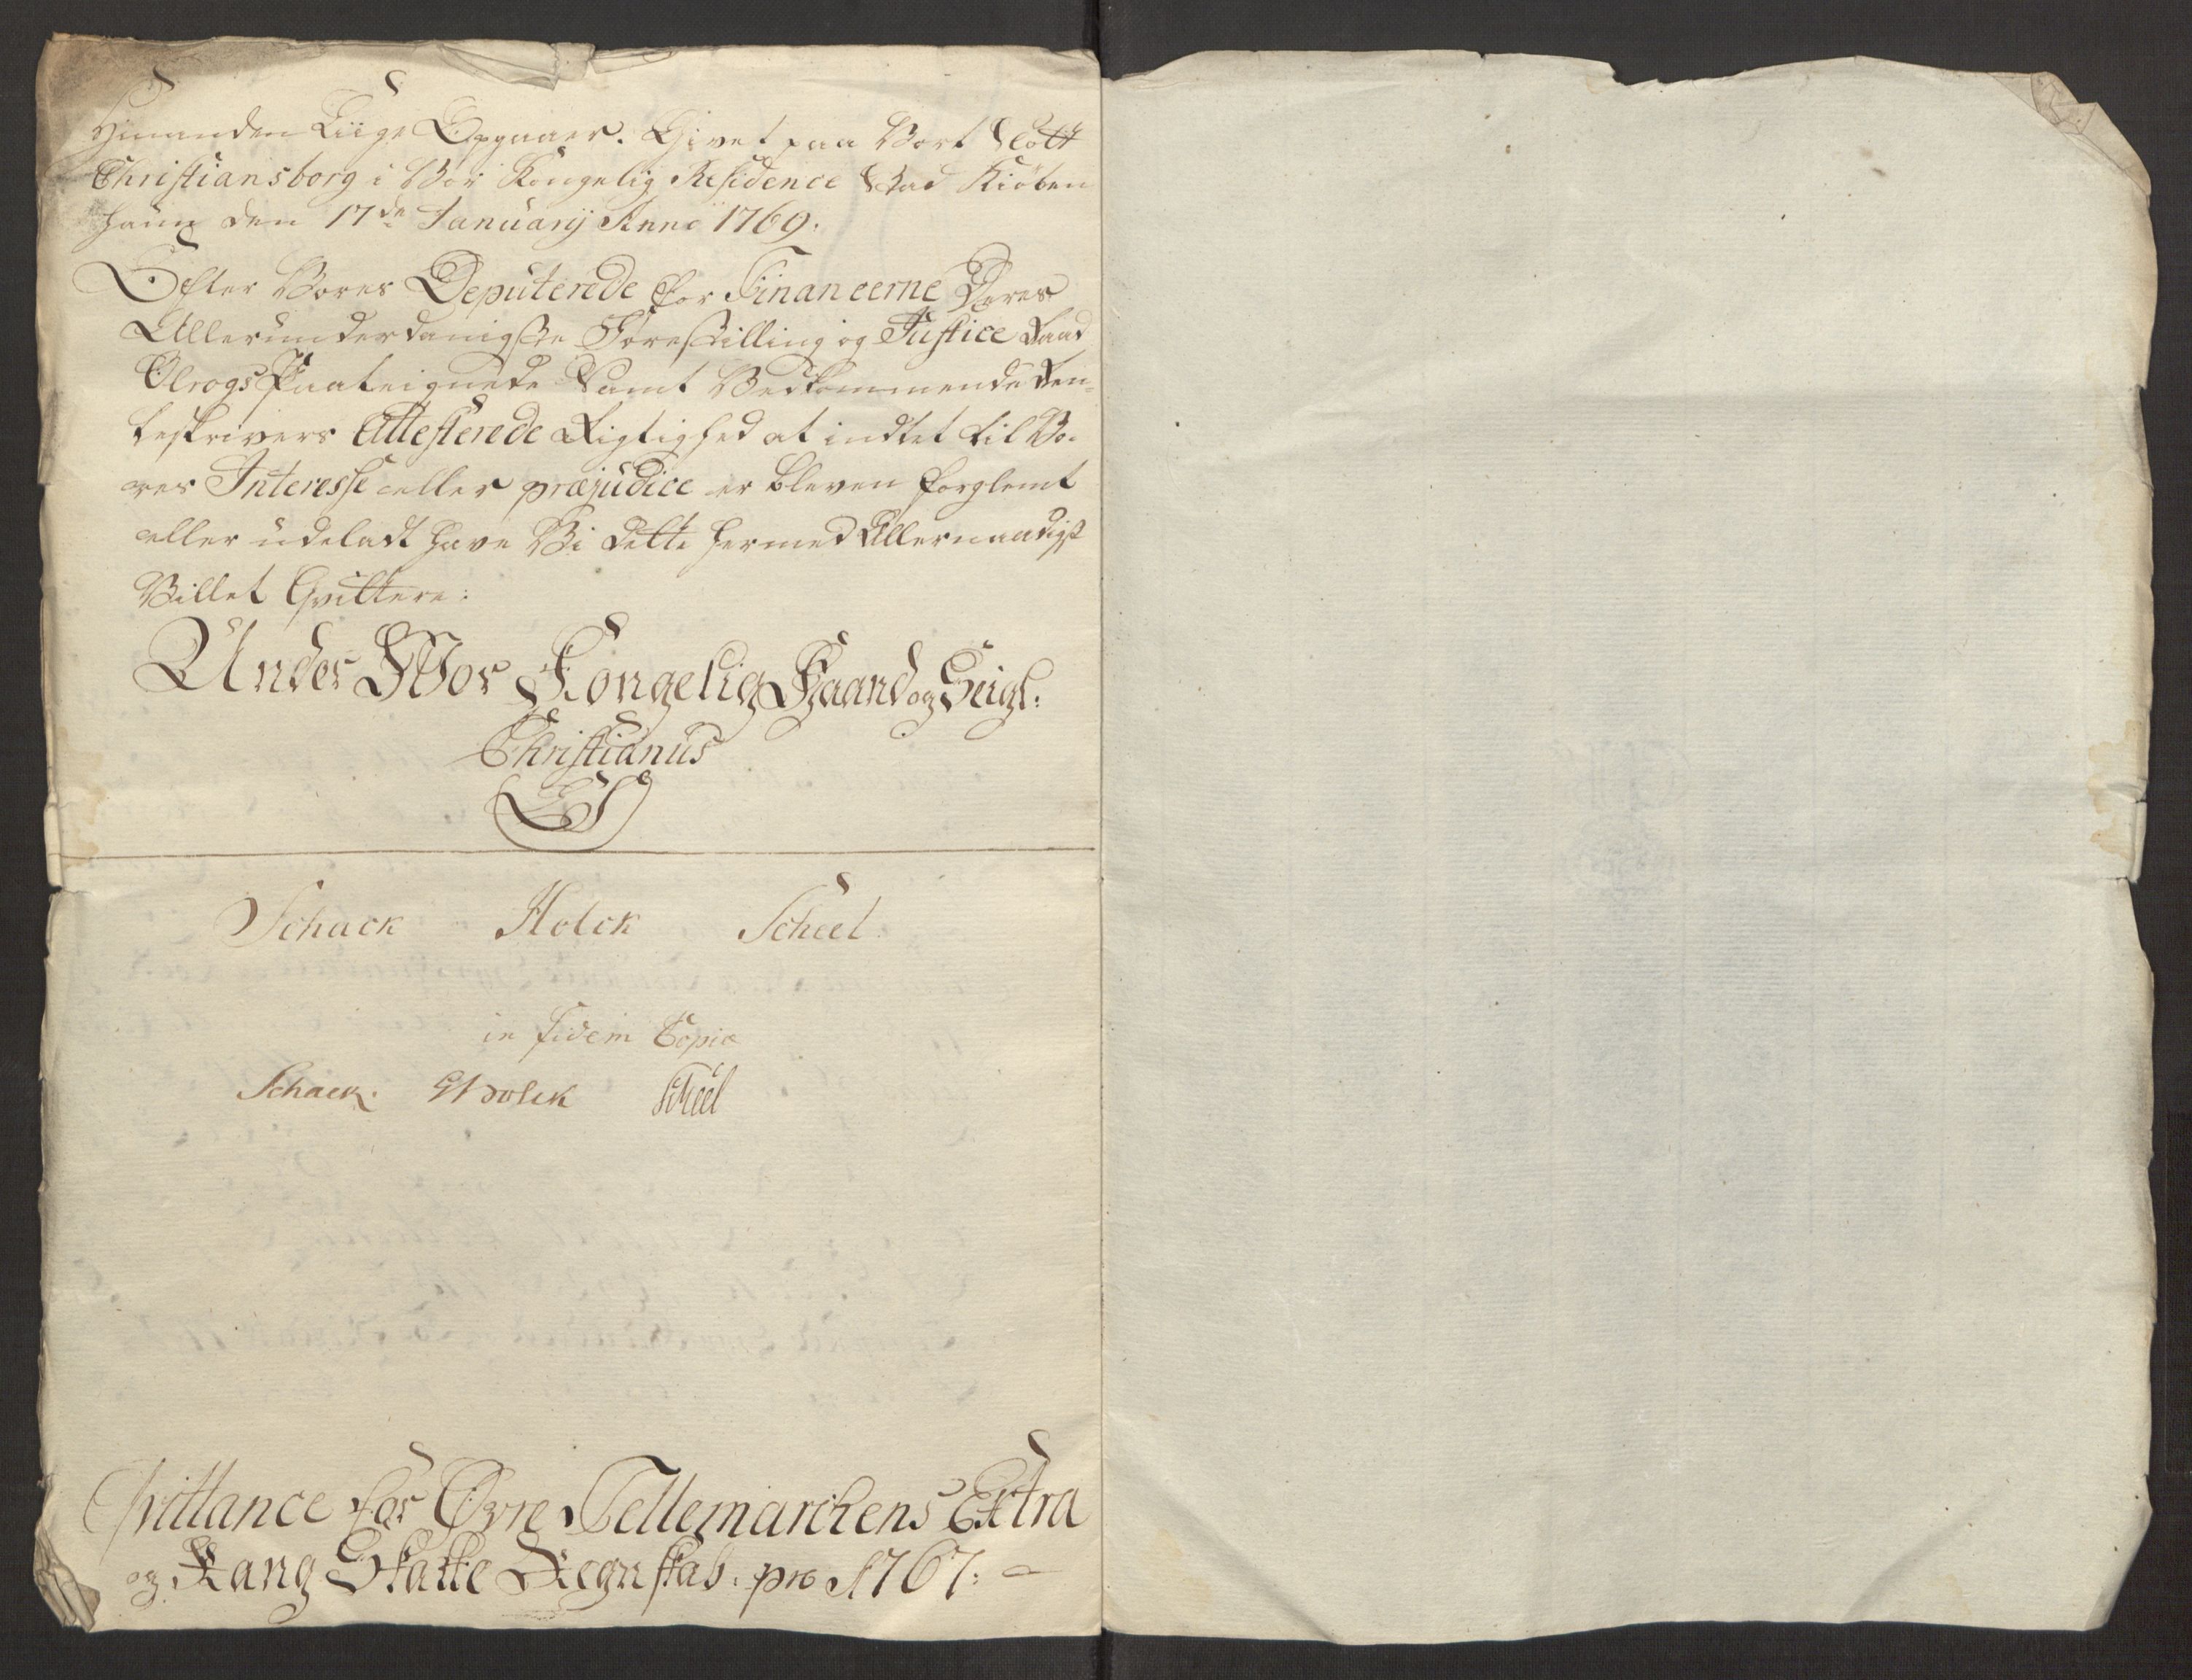 Hinanden Liige Opgaaer. Givet paa Vort Slott
Christiansborg i Vor Kongelig Residence Stad Kiøben
haun den 17de Januarij Anno 1769.
Efter Vores Deputerede for Financerne Deres
Allerunderdanigste Forestilling og Justice Raad
Olrogs Paateignede Samt Vedkommende Ren-
teskrivers Attesterede Rigtighed at indtet til Vo-
res Interesse eller præjudice er bleven forglemt
eller udeladt have Vi dette hermed Allernaadigst
Villet Qvittere:
Under Vor Kongelig Haand og Seigl:
Christianus
LS
Schack Holck Scheel
in fidem Copiæ
Schack. GHolck Scheel
Qvittance for Øvre Tellemarckens Extra
og Rang Skatte Regnskab: pro 1767: